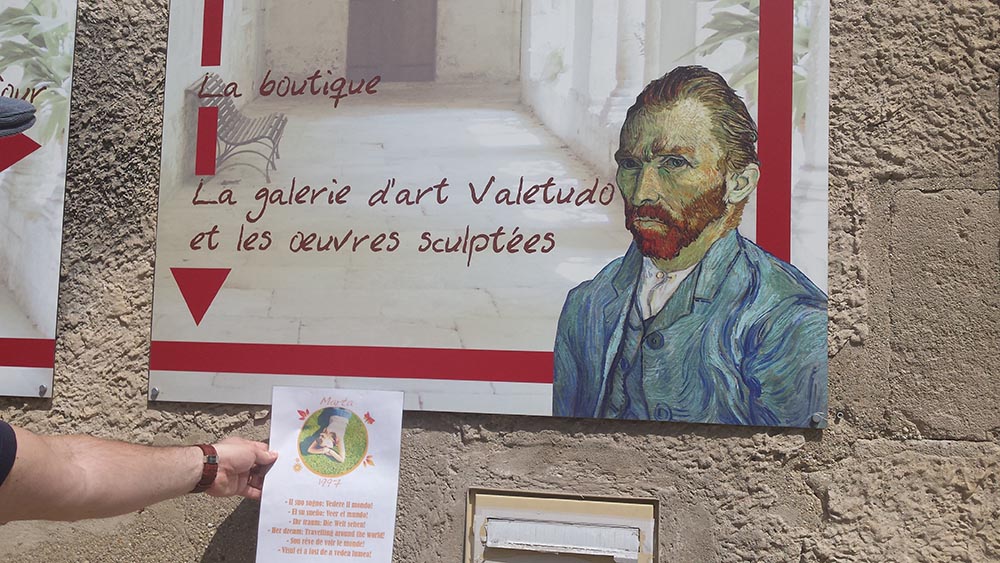 our
La boutique
La galerie d'art Valetudo
et les œuvres sculptées
Marta
1997
- Il suo sogno: Vedere il mondo!
- El su sueño: Veer el mundo!
- Ihr traum: Die Welt sehen!
- Her dream: Travelling around the world!
- Son rêve de voir le monde!
- Visul ei a fost de a vedea lumea!